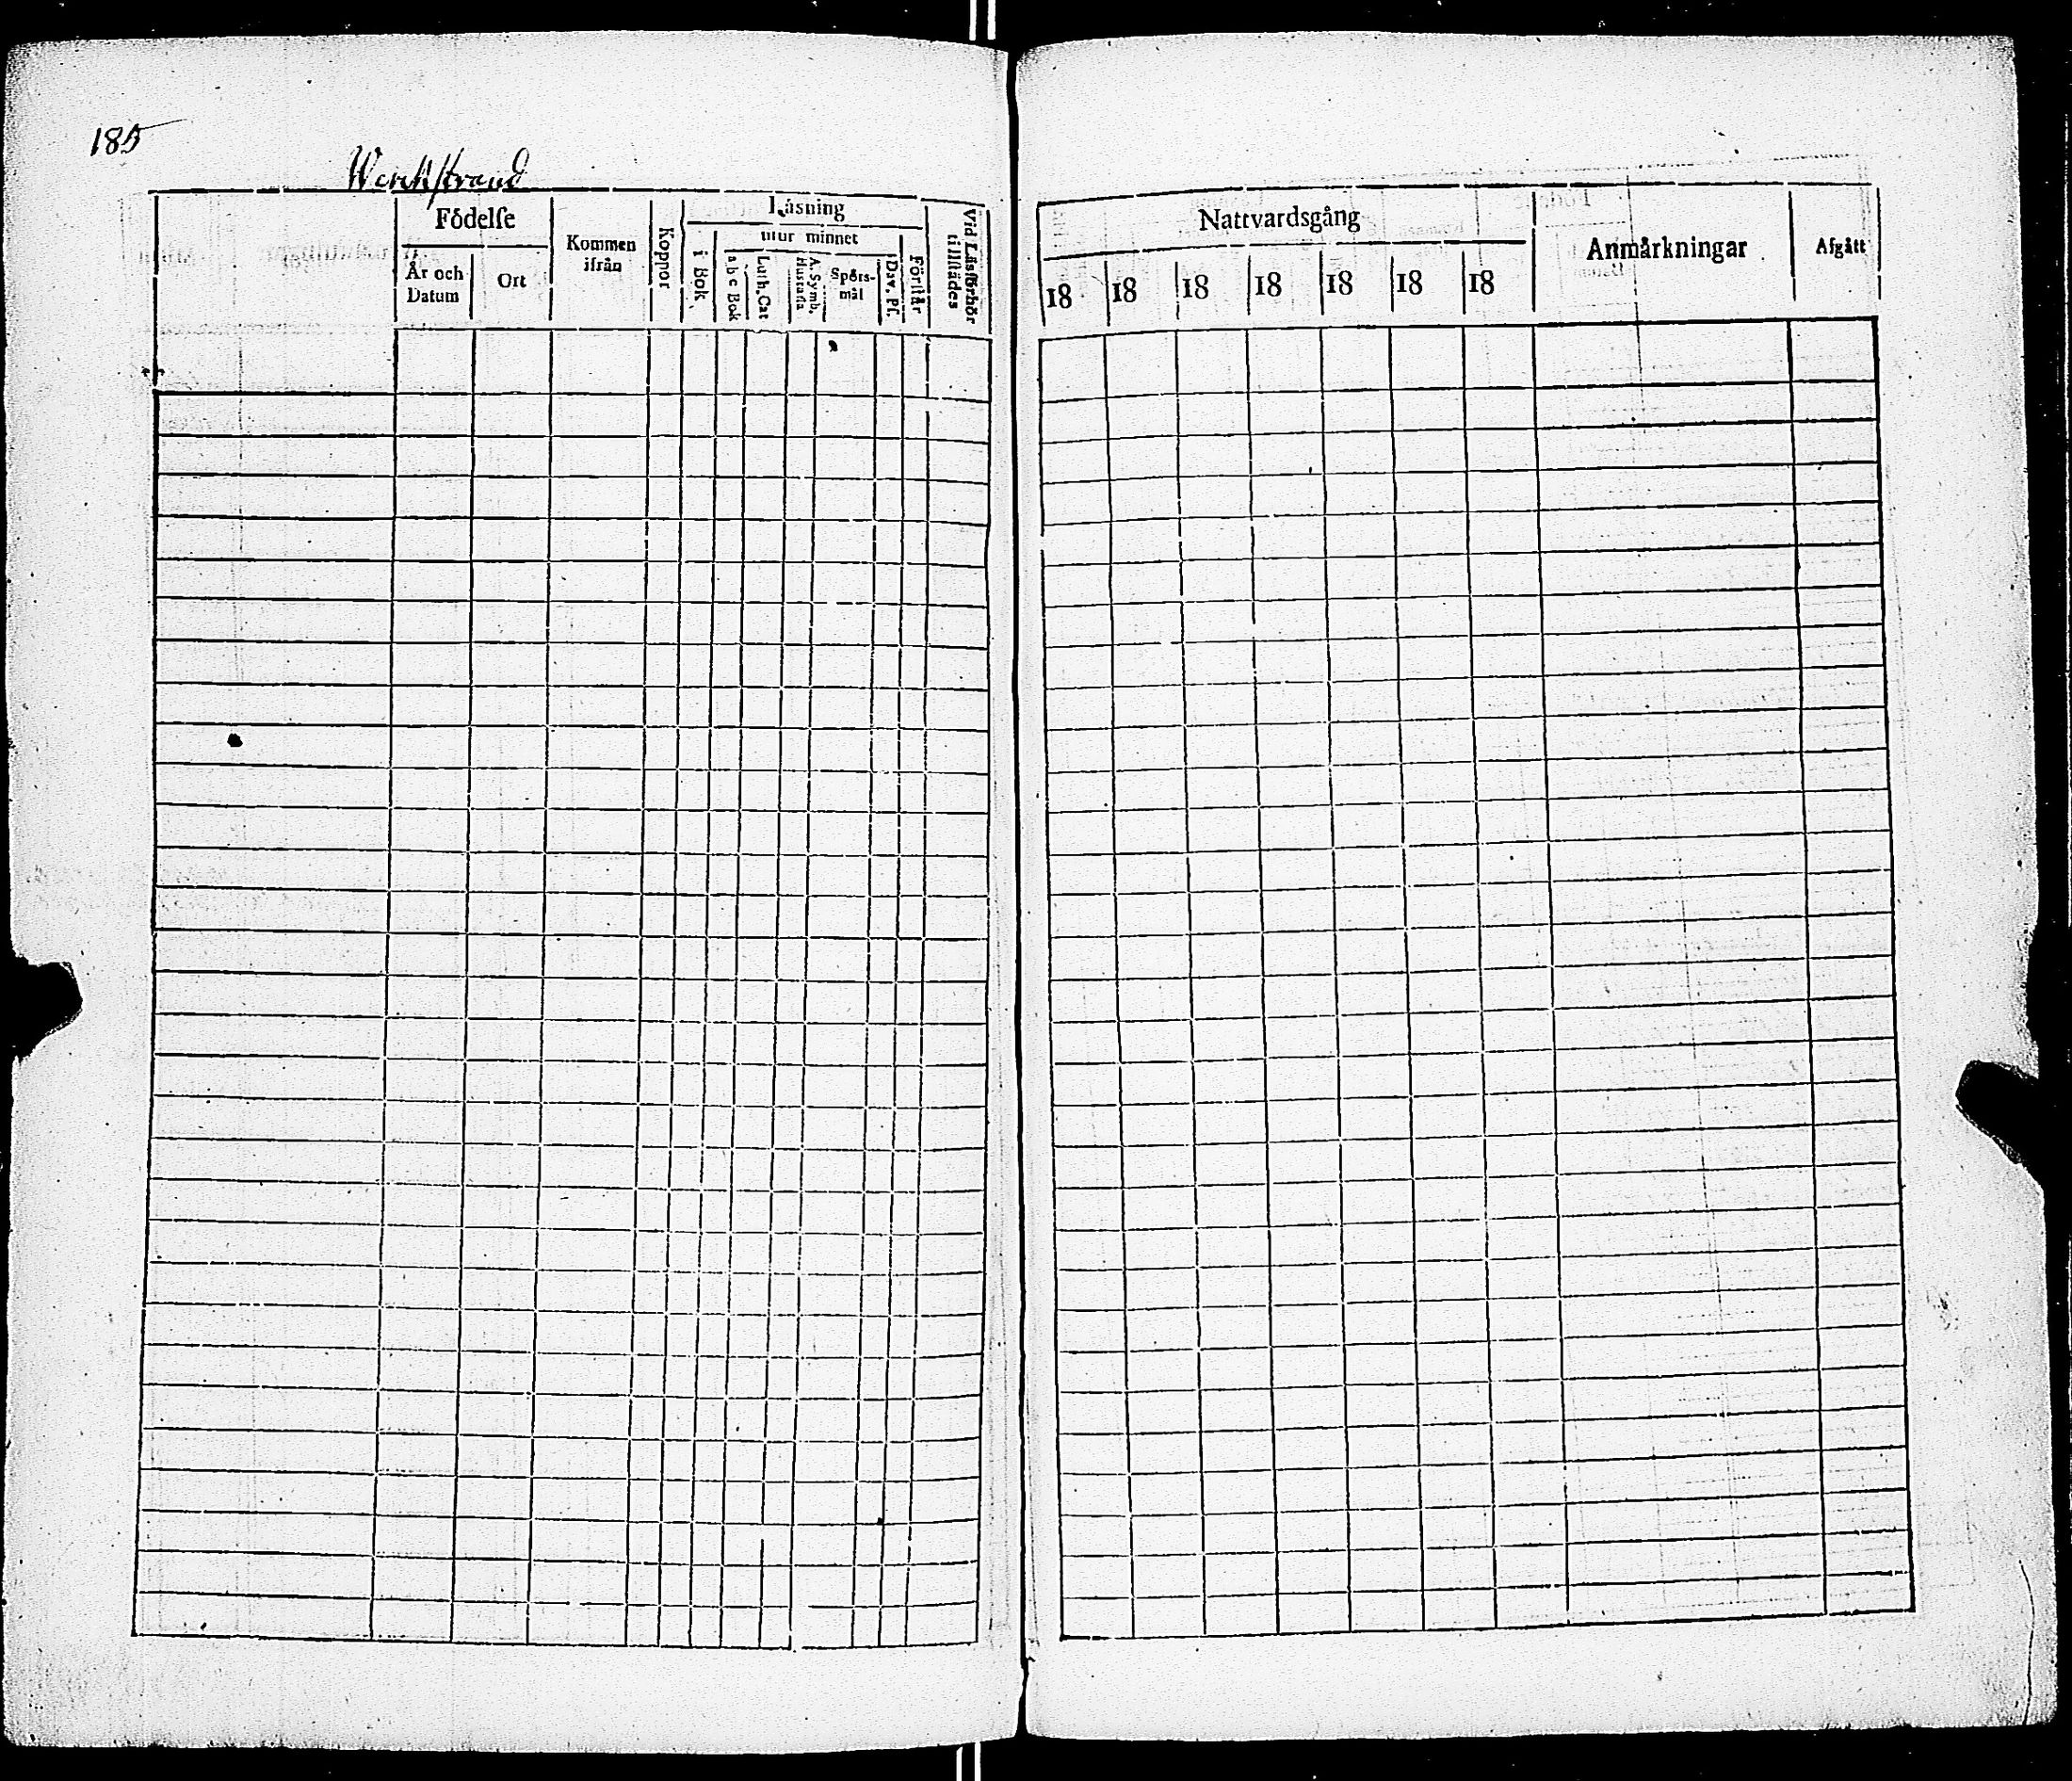 185
Werckstrand
Födelſe
År och Datum
Ort
Kommen ifrån
Koppor
Läsning
i Bok
utur minnet
a b c Bok
Luth. Cat
A. Symb. Hustafla
Spörs-mål
Dav. Pſ.
Förſtår
Vid Läsförhör tillſtädes
Nattvardsgång
18 18 18 18 18 18 18
Anmärkningar
Afgått